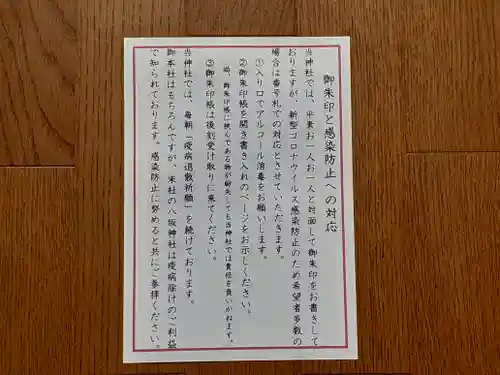 御朱印と感染防止への対応
当神社では、平素お一人お一人と対面して御朱印をお書きして
おりますが、新型コロナウイルス感染防止のため希望者多数の
場合は番号札での対応とさせていただきます。
①入り口でアルコール消毒をお願いします。
②御朱印帳を開き書き入れのページをお示しください。
尚、御朱印帳に挟んである物が紛失しても当神社では責任を負いかねます。
③御朱印帳は後刻受け取りに来てください。
当神社では、毎朝「疫病退散祈願」を続けております。
御本社はもちろんですが、末社の八坂神社は疫病除けのご利益
で知られております。感染防止に努めると共にご参拝ください。